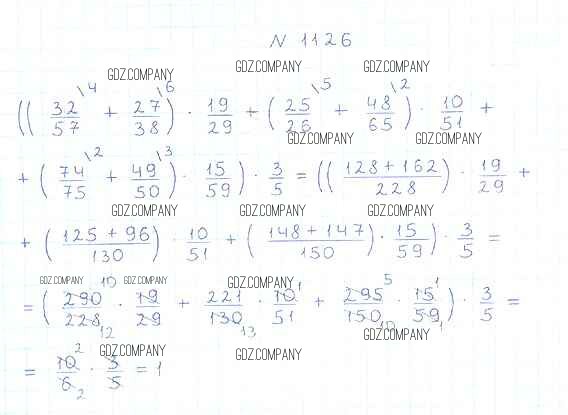 N 1126
GDZ.COMPANY GDZ.COMPANY GDZ.COMPANY
((32/57 \4 + 27/38 \6) · 19/29 + (25/26 \5 + 48/65 \2) · 10/51 +
GDZ.COMPANY GDZ.COMPANY
+ (74/75 \2 + 49/50 \3) · 15/59) · 3/5 = ((128 + 162)/228) · 19/29 +
GDZ.COMPANY GDZ.COMPANY GDZ.COMPANY
+ (125 + 96)/130) · 10/51 + (148 + 147)/150) · 15/59) · 3/5 =
GDZ.COMPANY GDZ.COMPANY GDZ.COMPANY
= (290/228 · 19/29 + 221/130 · 10/51 + 295/150 · 15/59) · 3/5 =
10 12 1 13 5 10 1 1
GDZ.COMPANY
= 10/6 · 3/5 = 1
2 2
GDZ.COMPANY GDZ.COMPANY